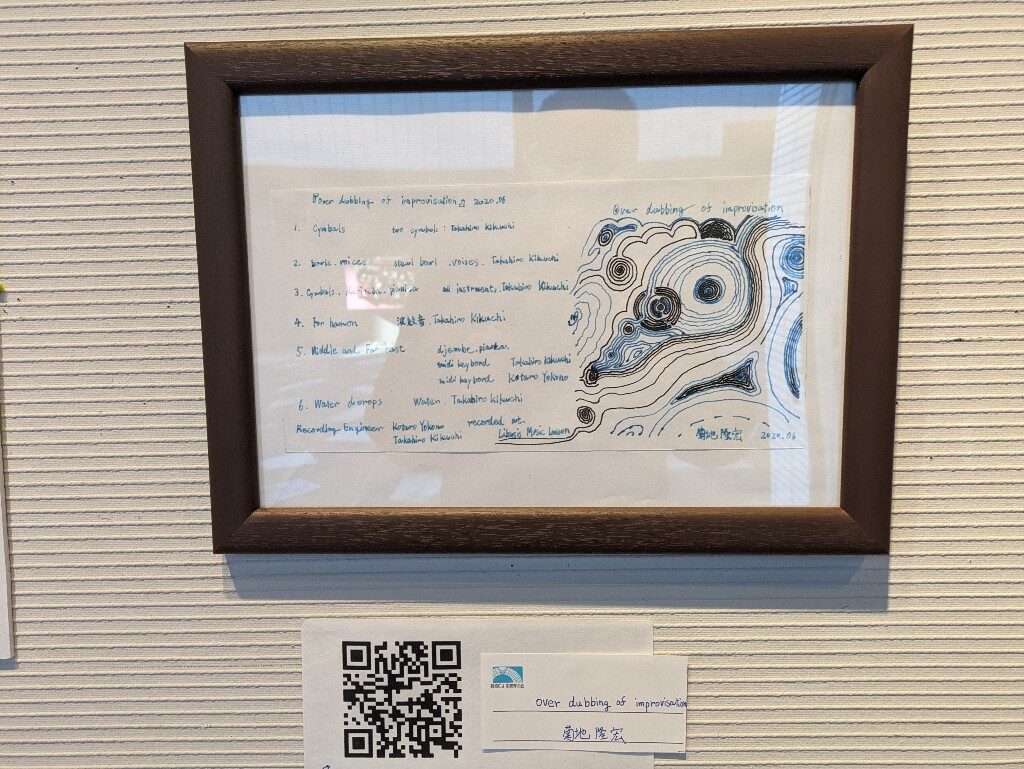 『over dubbing of improvisation』 2020.06
1. Cymbals two cymbals : Takahiro Kikuchi
2. bowls . voices bowl . voices . Takahiro Kikuchi
3. Cymbals . . pianica all instrment . Takahiro Kikuchi
4. For hamon 波紋音 . Takahiro Kikuchi
5. Middle and Far east djembe . pianica .
midi keybord Takahiro Kikuchi
midi keybord Kotaro Yokono
6. Water drops Water . Takahiro Kikuchi
Recording Engineer Kotaro Yokono
Takahiro Kikuchi
recorded at.
Music Lesson
Over dubbing of improvisation
菊地 隆宏 2020.06
over dubbing of improvisation
菊地 隆宏